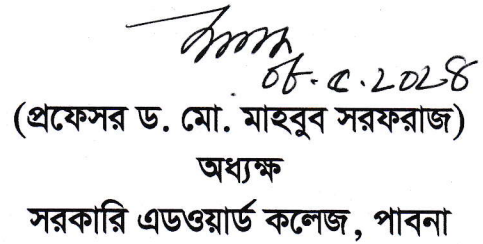 ০৮.৫.২০২৪
(প্রফেসর ড. মো. মাহবুব সরফরাজ)
অধ্যক্ষ
সরকারি এডওয়ার্ড কলেজ, পাবনা